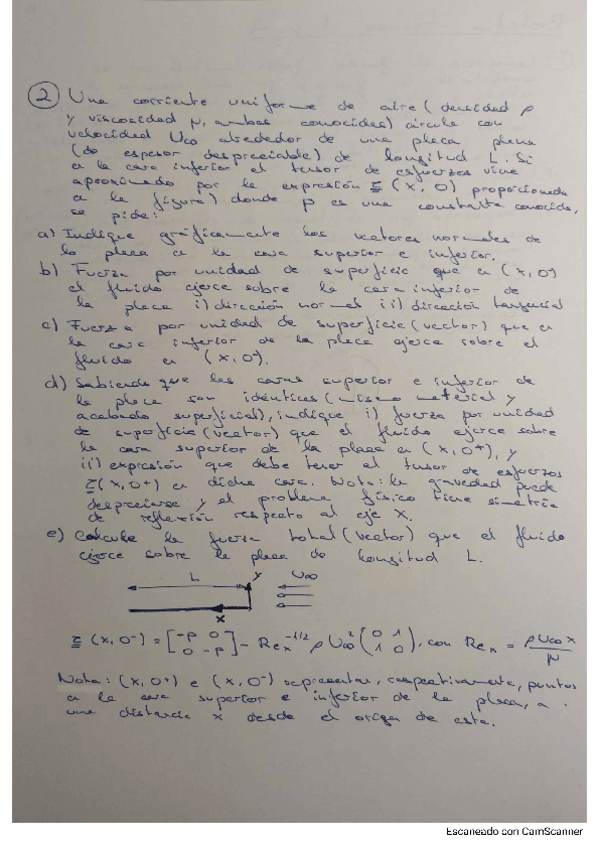 2 Una corriente uniforme de aire (densidad ρ
y viscosidad μ, ambas conocidas) circula con
velocidad U∞ alrededor de una placa plana
(de espesor despreciable) de longitud L. Si
en la cara inferior el tensor de esfuerzos viene
aproximado por la expresión τ(x,0⁻) proporcionada
en la figura) donde p es una constante conocida,
se pide:
a) Indique gráficamente los vectores normales de
la placa en la cara superior e inferior.
b) Fuerza por unidad de superficie que en (x,0⁻)
el fluido ejerce sobre la cara inferior de
la placa i) dirección normal ii) dirección tangencial
c) Fuerza por unidad de superficie (vector) que en
la cara inferior de la placa ejerce sobre el
fluido en (x,0⁻).
d) Sabiendo que las caras superior e inferior de
la placa son idénticas (mismo material y
acabado superficial), indique i) fuerza por unidad
de superficie (vector) que el fluido ejerce sobre
la cara superior de la placa en (x,0⁺), y
ii) expresión que debe tener el tensor de esfuerzos
τ(x,0⁺) en dicha cara. Nota: la gravedad puede
despreciarse y el problema físico tiene simetría
de reflexión respecto al eje X.
e) Calcule la fuerza total (vector) que el fluido
ejerce sobre la placa de longitud L.
L y U∞
x
τ(x,0⁻) = [-p 0; 0 -p] - Reₓ^(-1/2) ρ U∞² (0 1; 1 0), con Reₓ = ρU∞x/μ
Nota: (x,0⁺) e (x,0⁻) representan, respectivamente, puntos
en la cara superior e inferior de la placa, a
una distancia x desde el origen de esta.
Escaneado con CamScanner